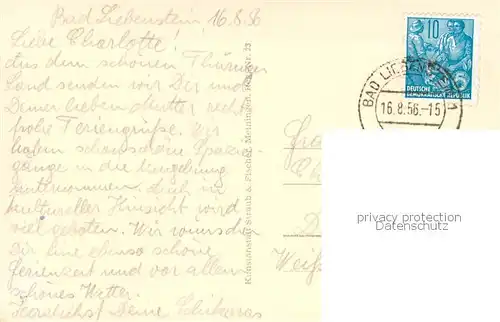 Bad Liebenstein, 16.8.56
Liebe Charlotte!
Aus dem schönen Thüringer
Land senden wir Dir und
Deiner lieben Mutter recht
frohe Feriengrüße. Wir
haben schon schöne Spazier-
gänge in die Umgebung
unternommen. Auch in
kultureller Hinsicht wird
viel geboten. Wir wünschen
Dir eine ebenso schöne
Ferienzeit und vor allem
schönes Wetter.
Herzlichst Deine
Kunstanstalt Straub & Fischer, Meiningen, 23
10
DEUTSCHE
DEMOKRATISCHE REPUBLIK
BAD LIEBENSTEIN
16.8.56.-15
privacy protection
Datenschutz